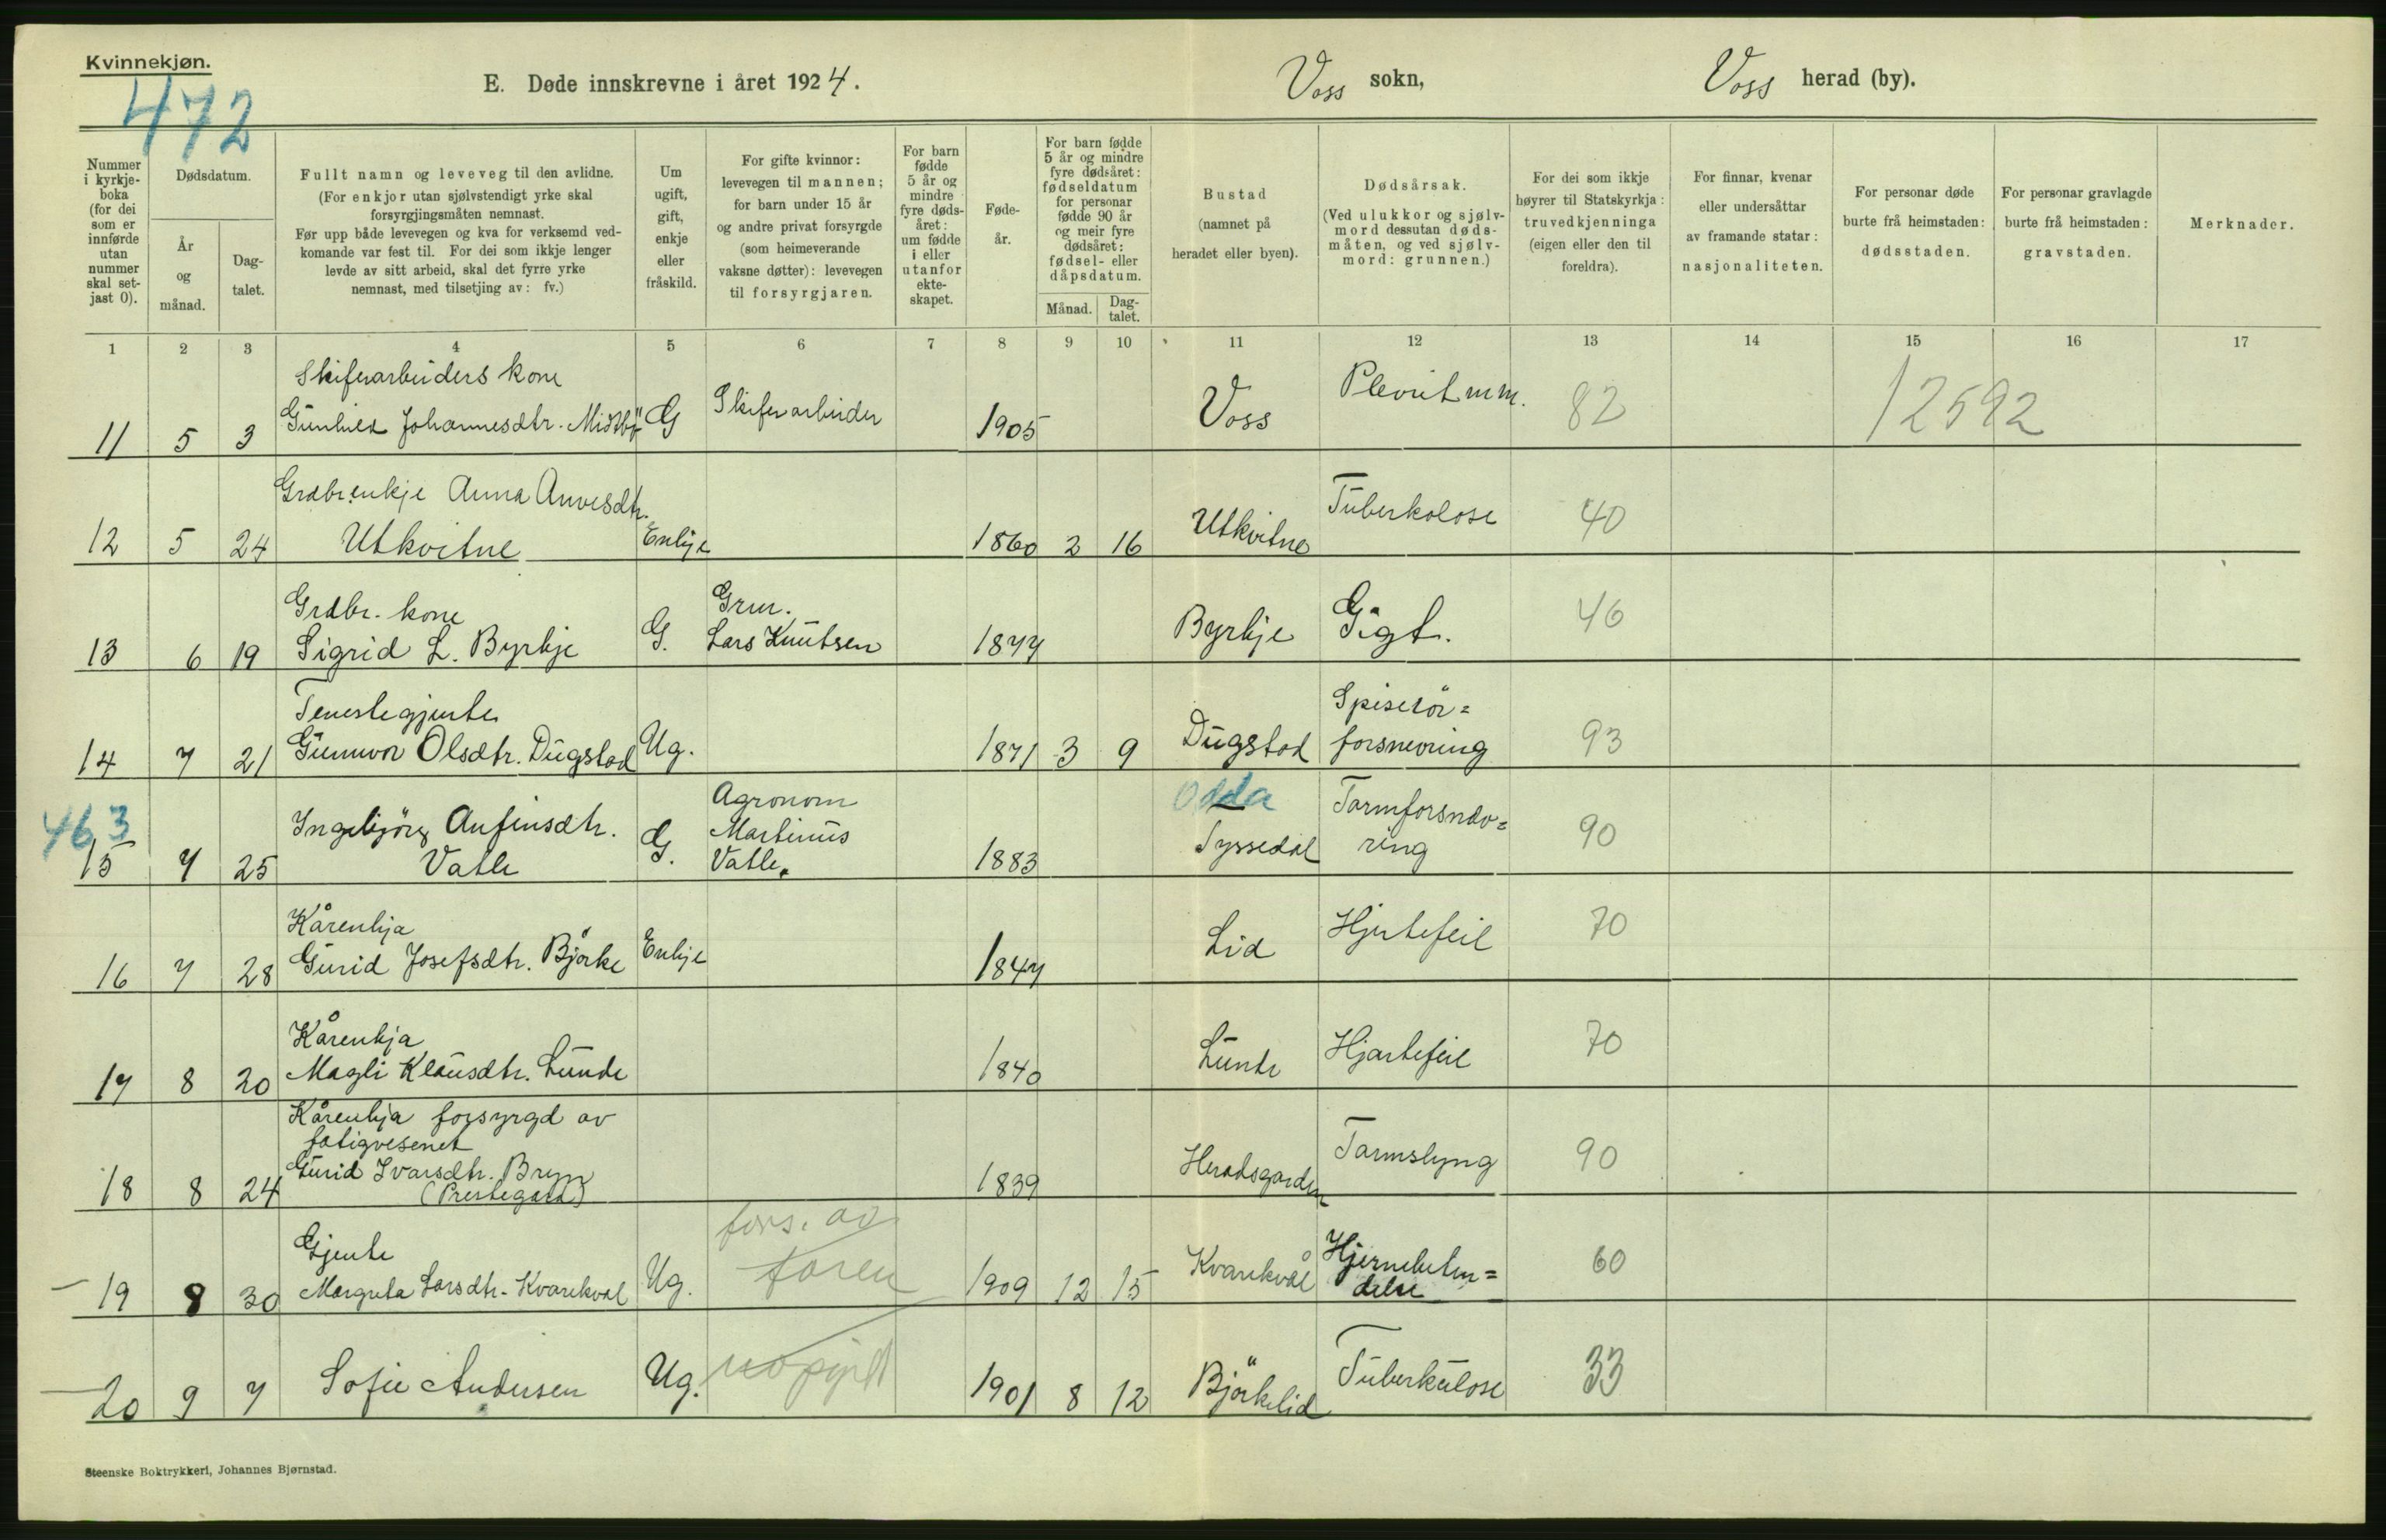 Kvinnekjøn.
472
E. Døde innskrevne i året 1924.
Voss sokn,
Voss herad (by).
Nummer i kyrkje-boka (for dei som er innførde utan nummer skal set-jast 0).
Dødsdatum.
År og månad.
Dag-talet.
Fullt namn og leveveg til den avlidne.
(For enkjor utan sjølvstendigt yrke skal
forsyrgjingsmåten nemnast.
Før upp både levevegen og kva for verksemd ved-
komande var fest til. For dei som ikkje lenger
levde av sitt arbeid, skal det fyrre yrke
nemnast, med tilsetjing av: fv.)
Um ugift, gift, enkje eller fråskild.
For gifte kvinnor:
levevegen til mannen;
for barn under 15 år
og andre privat forsyrgde
(som heimeverande
vaksne døtter): levevegen
til forsyrgjaren.
For barn fødde 5 år og mindre fyre døds-året: um fødde i eller utanfor ekte-skapet.
Føde-år.
For barn fødde
5 år og mindre
fyre dødsåret:
fødseldatum
for personar
fødde 90 år
og meir fyre
dødsåret:
fødsel- eller
dåpsdatum.
Månad.
Dag-talet.
Bustad
(namnet på
heradet eller byen).
Dødsårsak.
(Ved ulukkor og sjølv-
mord dessutan døds-
måten, og ved sjølv-
mord: grunnen.)
For dei som ikkje
høyrer til Statskyrkja:
truvedkjenninga
(eigen eller den til
foreldra).
For finnar, kvenar
eller undersåttar
av framande statar:
nasjonaliteten.
For personar døde
burte frå heimstaden:
dødsstaden.
For personar gravlagde
burte frå heimstaden:
gravstaden.
Merknader.
1 2 3 4 5 6 7 8 9 10 11 12 13 14 15 16 17
Skiferarbeiders kone
11 5 3 Gunhild Johannesdtr. Midtbö G Skiferarbeider 1905 Voss Plevrit m.m. 82 12592
Grdbr.enkje Anna Anvesdtr.
12 5 24 Utkvitne Enkje 1860 2 16 Utkvitne Tuberkolose 40
Grdbr. kone
13 6 19 Sigrid L. Byrkje G. Grm. Lars Knutsen 1877 Byrkje Gigt. 46
Tenestegjente
14 7 21 Gunnvor Olsdtr. Dugstad Ug. 1871 3 9 Dugstad Spiserör=
forsnevring 93
463
15 7 25 Ingebjörg Anfinsdtr.
Vatle G. Agronom
Martinus
Vatle. 1883 Odda
Tyssedal Tarmforsnev=
ring 90
Kårenkja
16 7 28 Gurid Josefsdtr. Björke Enkje 1847 Lid Hjertefeil 70
Kårenkja
17 8 20 Magli Klausdtr. Lunde 1840 Lunde Hjartefeil 70
Kårenkja forsyrgd av
fatigvesenet
18 8 24 Gurid Ivarsdtr. Bryn
(Prestegard) 1839 Heradsgarden Tarmslyng 90
Gjente
19 8 30 Margreta Larsdtr. Kvarekval Ug. fors. av
faren 1909 12 15 Kvarekvål Hjernebeten=
delse 60
20 9 7 Sofie Andersen Ug. uopgitt 1901 8 12 Björkelid Tuberkulose 33
Steenske Boktrykkeri, Johannes Bjørnstad.